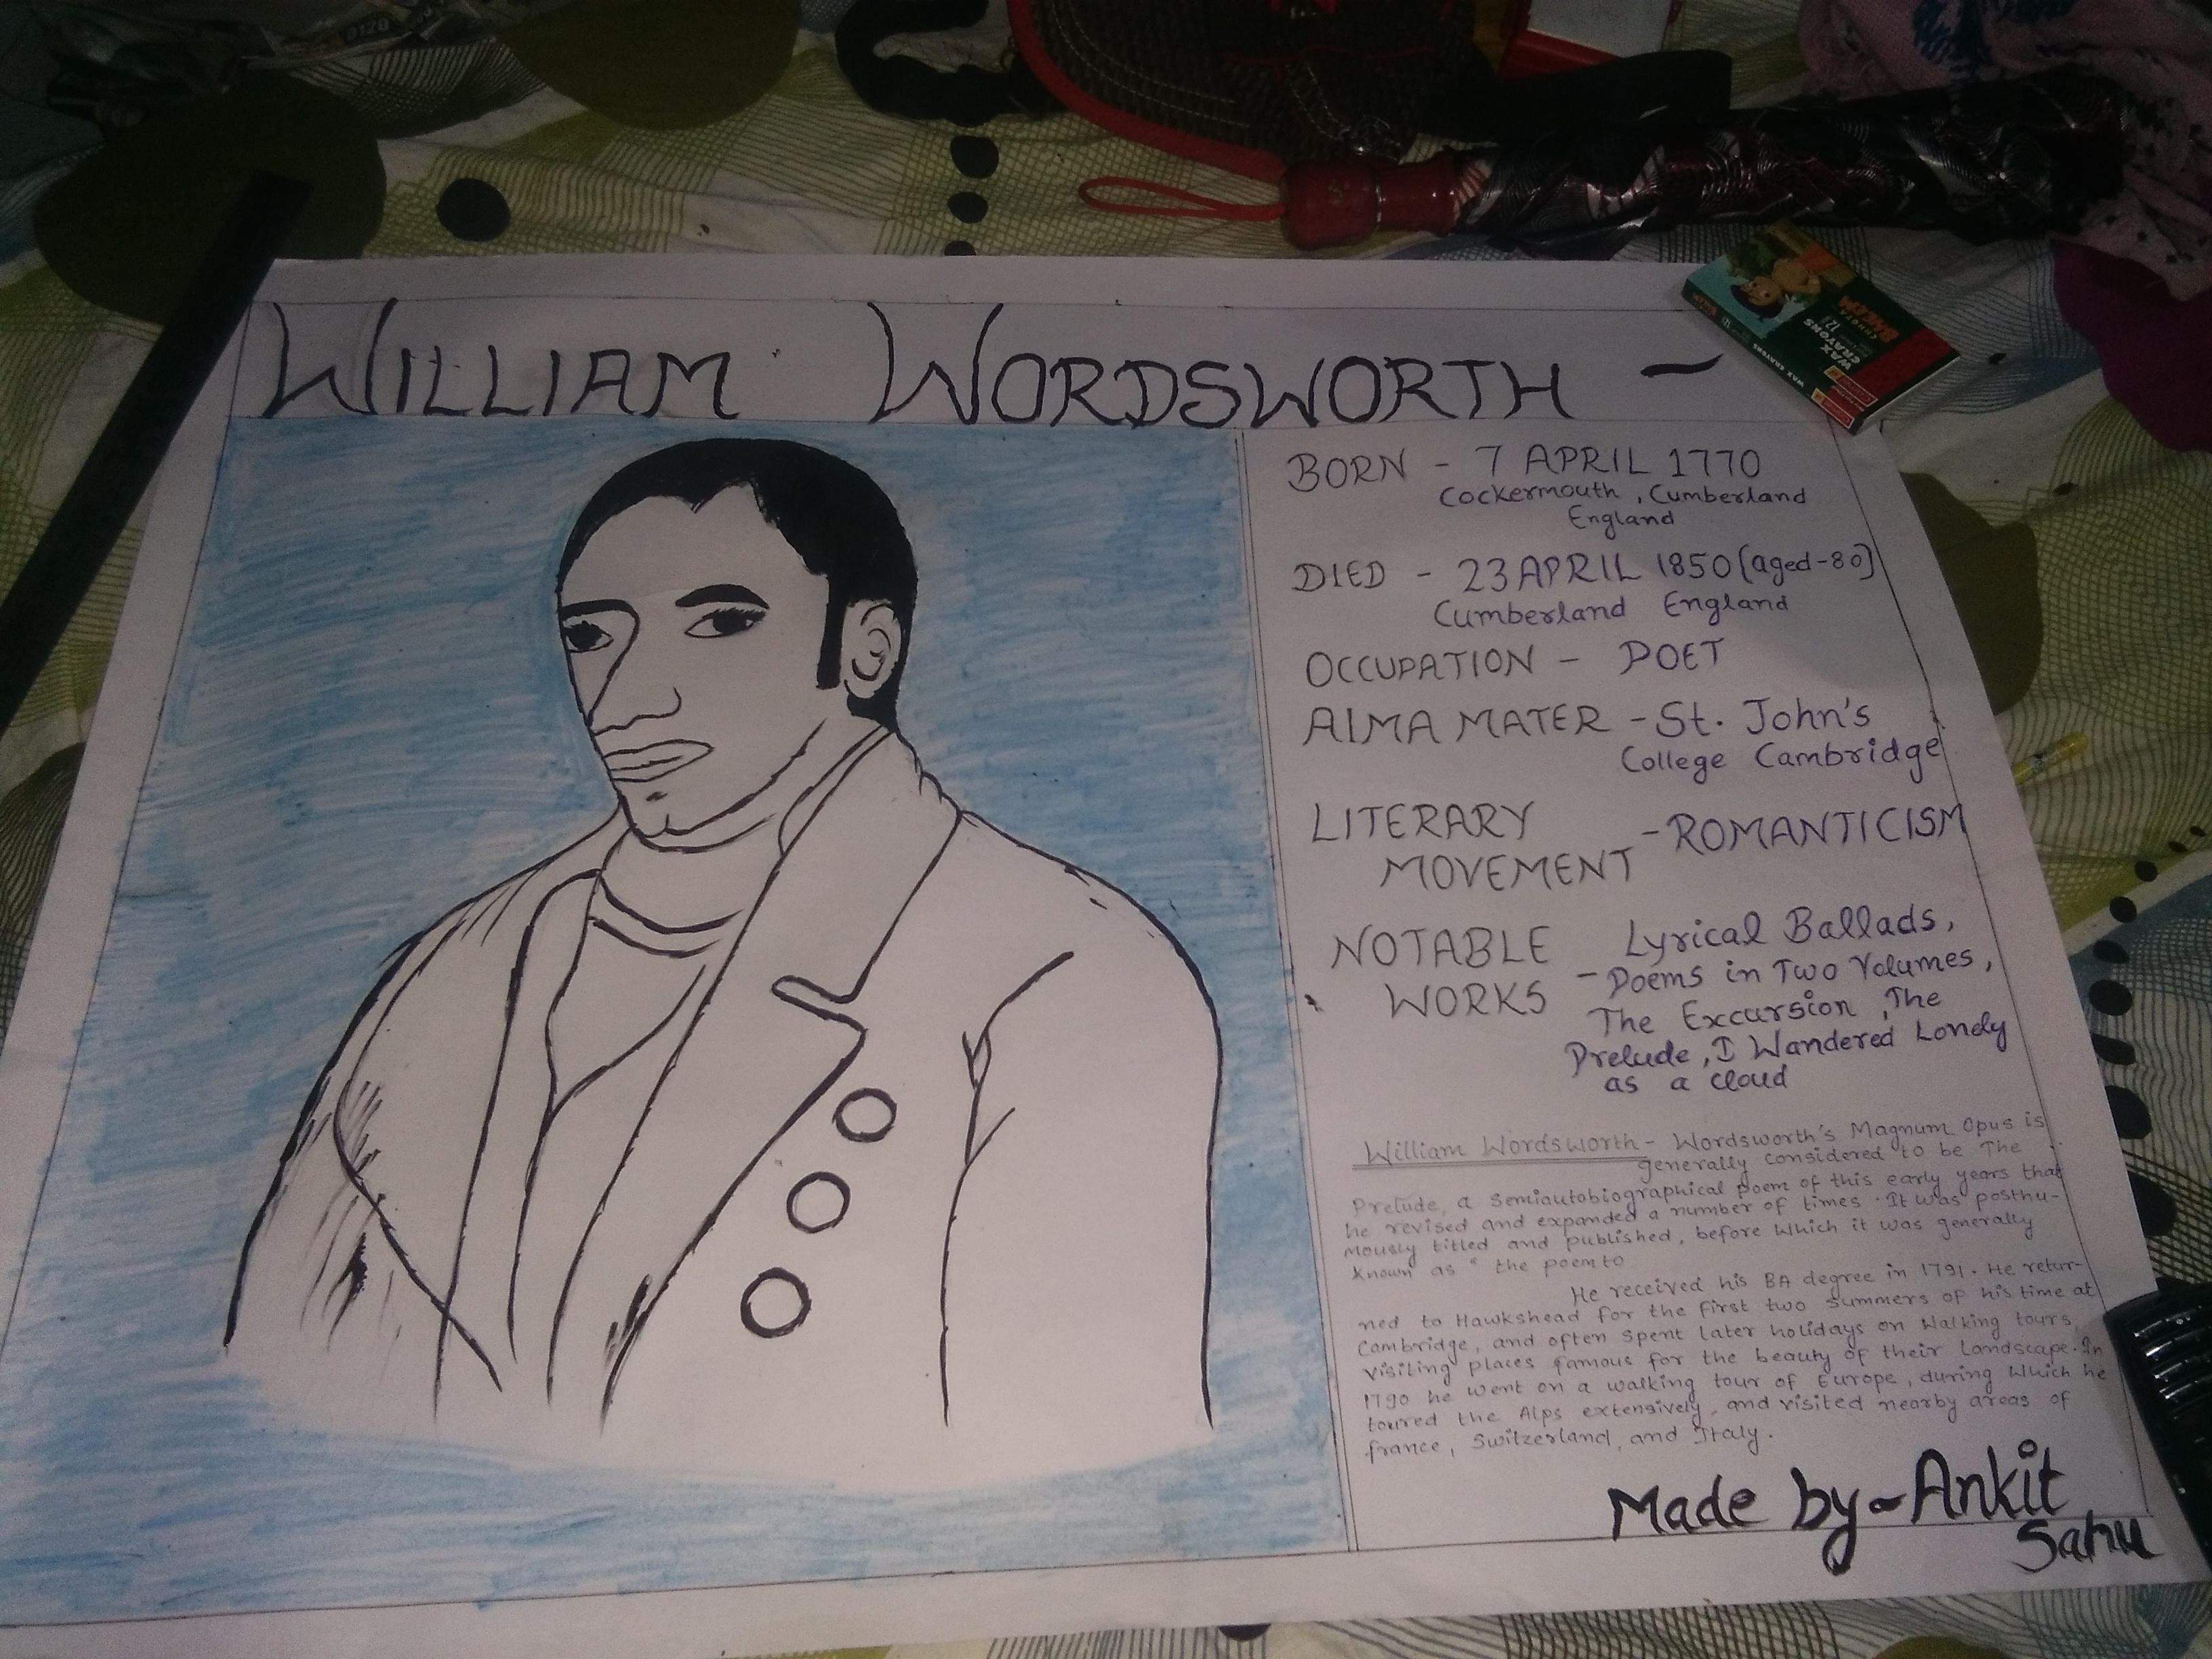 WILLIAM WORDSWORTH -
BORN - 7 APRIL 1770
Cockermouth, Cumberland
England
DIED - 23 APRIL 1850 (aged-80)
Cumberland England
OCCUPATION - POET
AlMA MATER - St. John's
College Cambridge
LITERARY
MOVEMENT - ROMANTICISM
NOTABLE
WORKS -
Lyrical Ballads,
Poems in Two Volumes,
The Excursion, The
Prelude, I Wandered Lonely
as a cloud
William Wordsworth - Wordsworth's Magnum Opus is
generally considered to be The
Prelude, a semiautobiographical poem of this early years that
he revised and expanded a number of times. It was posthu-
mously titled and published, before which it was generally
known as " the poem to
He received his BA degree in 1791. He retur-
ned to Hawkshead for the first two summers of his time at
Cambridge, and often spent later holidays on walking tours,
visiting places famous for the beauty of their landscape. In
1790 he went on a walking tour of Europe, during which he
toured the Alps extensively, and visited nearby areas of
france, Switzerland, and Italy.
Made by - Ankit
Sahu
CHHOTA
BHEEM
WAX
CRAYONS
12
WAX CRAYONS
0120